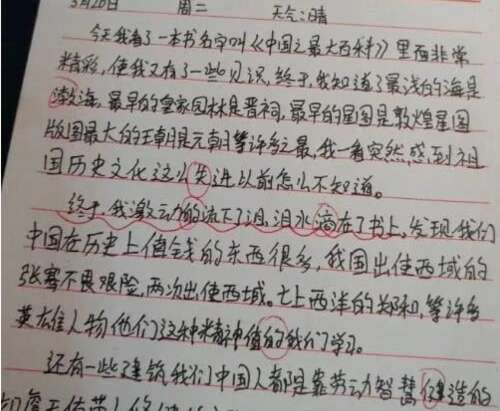 3月20日 周二 天气:晴
今天我看了一本书名字叫《中国之最大百科》里面非常
精彩,使我又有了一些见识,终于,我知道了最浅的海是
渤海,最早的皇家园林是晋祠,最早的星图是敦煌星图
版图最大的王朝是元朝等许多之最,我一看突然,感到祖
国历史文化这么先进以前怎么不知道。
终于,我激动的流下了泪,泪水滴在了书上。发现,我们
中国在历史上值钱的东西很多,我国出使西域的
张骞不畏艰险,两次出使西域。七上西洋的郑和,等许多
英雄人物,他们这种精神值的我们学习。
还有一些建筑,我们中国人都是靠劳动智慧健造的